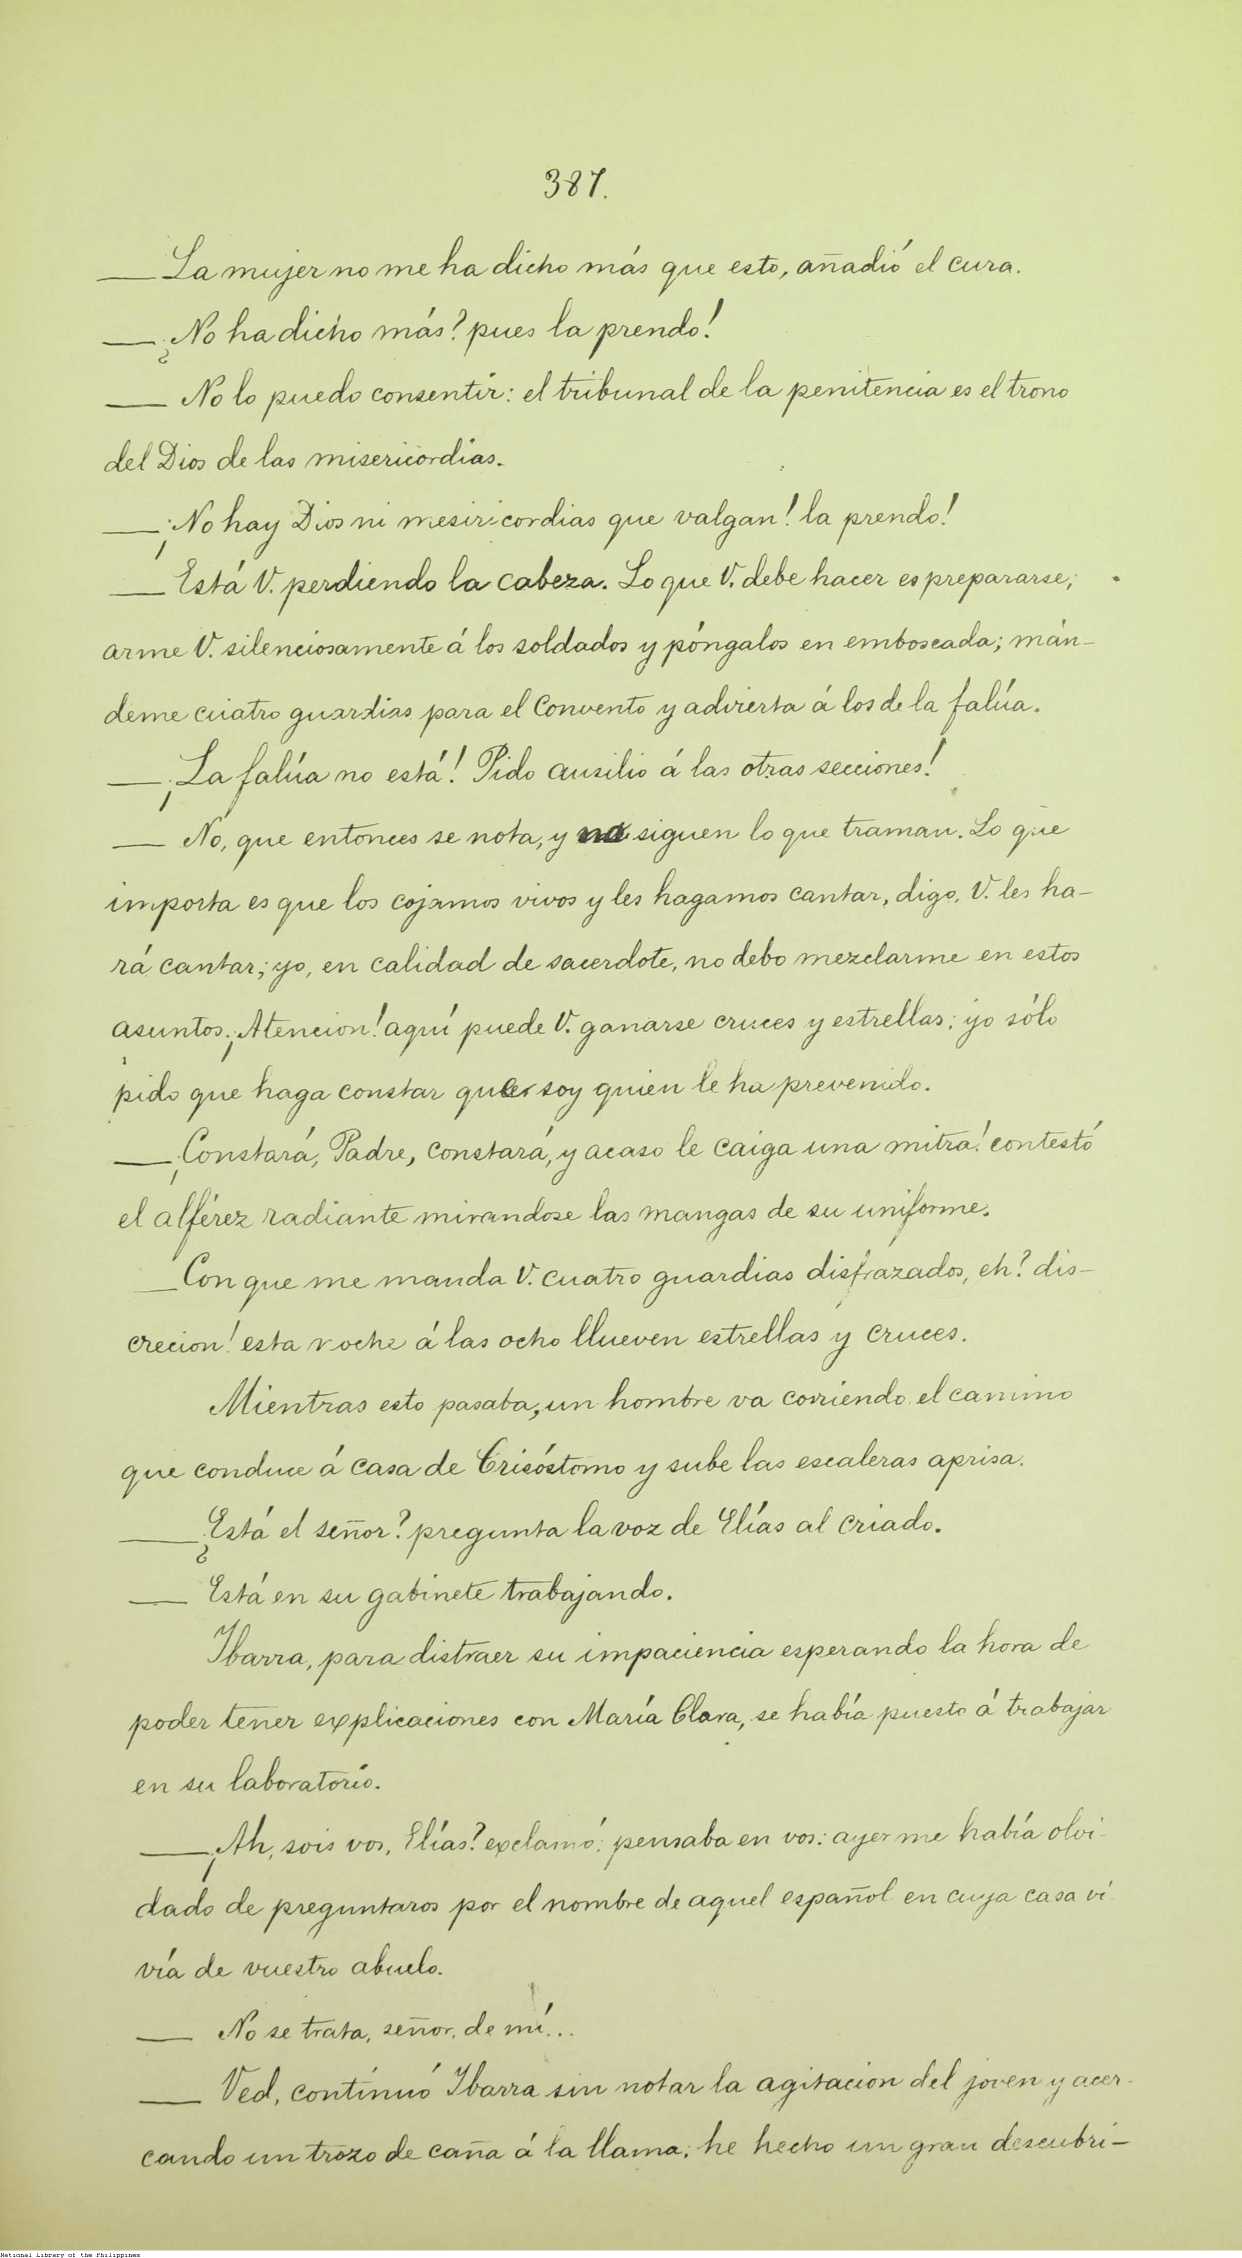 387.
— La mujer no me ha dicho más que esto, añadió el cura.
— ¿No ha dicho más? pues la prendo!
— No lo puedo consentir: el tribunal de la penitencia es el trono
del Dios de las misericordias.
— ¡No hay Dios ni mesiricordias que valgan! la prendo!
— Está V. perdiendo la cabeza. Lo que V. debe hacer es prepararse;
arme V. silenciosamente á los soldados y póngalos en emboscada; mán-
deme cuatro guardias para el Convento y advierta á los de la falúa.
— ¡La falúa no está! Pido ausilio á las otras secciones!
— No, que entonces se nota, y no siguen lo que traman. Lo que
importa es que los cojamos vivos y les hagamos cantar, digo, V. les ha-
rá cantar; yo, en calidad de sacerdote, no debo mezclarme en estos
asuntos. ¡Atencion! aquí puede V. ganarse cruces y estrellas; yo sólo
pido que haga constar que soy quien le ha prevenido.
— ¡Constará, Padre, constará, y acaso le caiga una mitra! contestó
el alférez radiante mirandose las mangas de su uniforme.
— Con que me manda V. cuatro guardias disfrazados, eh? dis-
crecion! esta noche á las ocho llueven estrellas y cruces.
Mientras esto pasaba, un hombre va corriendo el camino
que conduce á casa de Crisóstomo y sube las escaleras aprisa.
— ¿Está el señor? pregunta la voz de Elías al criado.
— Está en su gabinete trabajando.
Ibarra, para distraer su impaciencia esperando la hora de
poder tener explicaciones con María Clara, se había puesto á trabajar
en su laboratorio.
— ¡Ah, sois vos, Elías? exclamó; pensaba en vos: ayer me había olvi-
dado de preguntaros por el nombre de aquel español en cuya casa vi-
vía de vuestro abuelo.
— No se trata, señor, de mí...
— Ved, continuó Ibarra sin notar la agitacion del joven y acer-
cando un trozo de caña á la llama; he hecho un gran descubri-
National Library of the Philippines